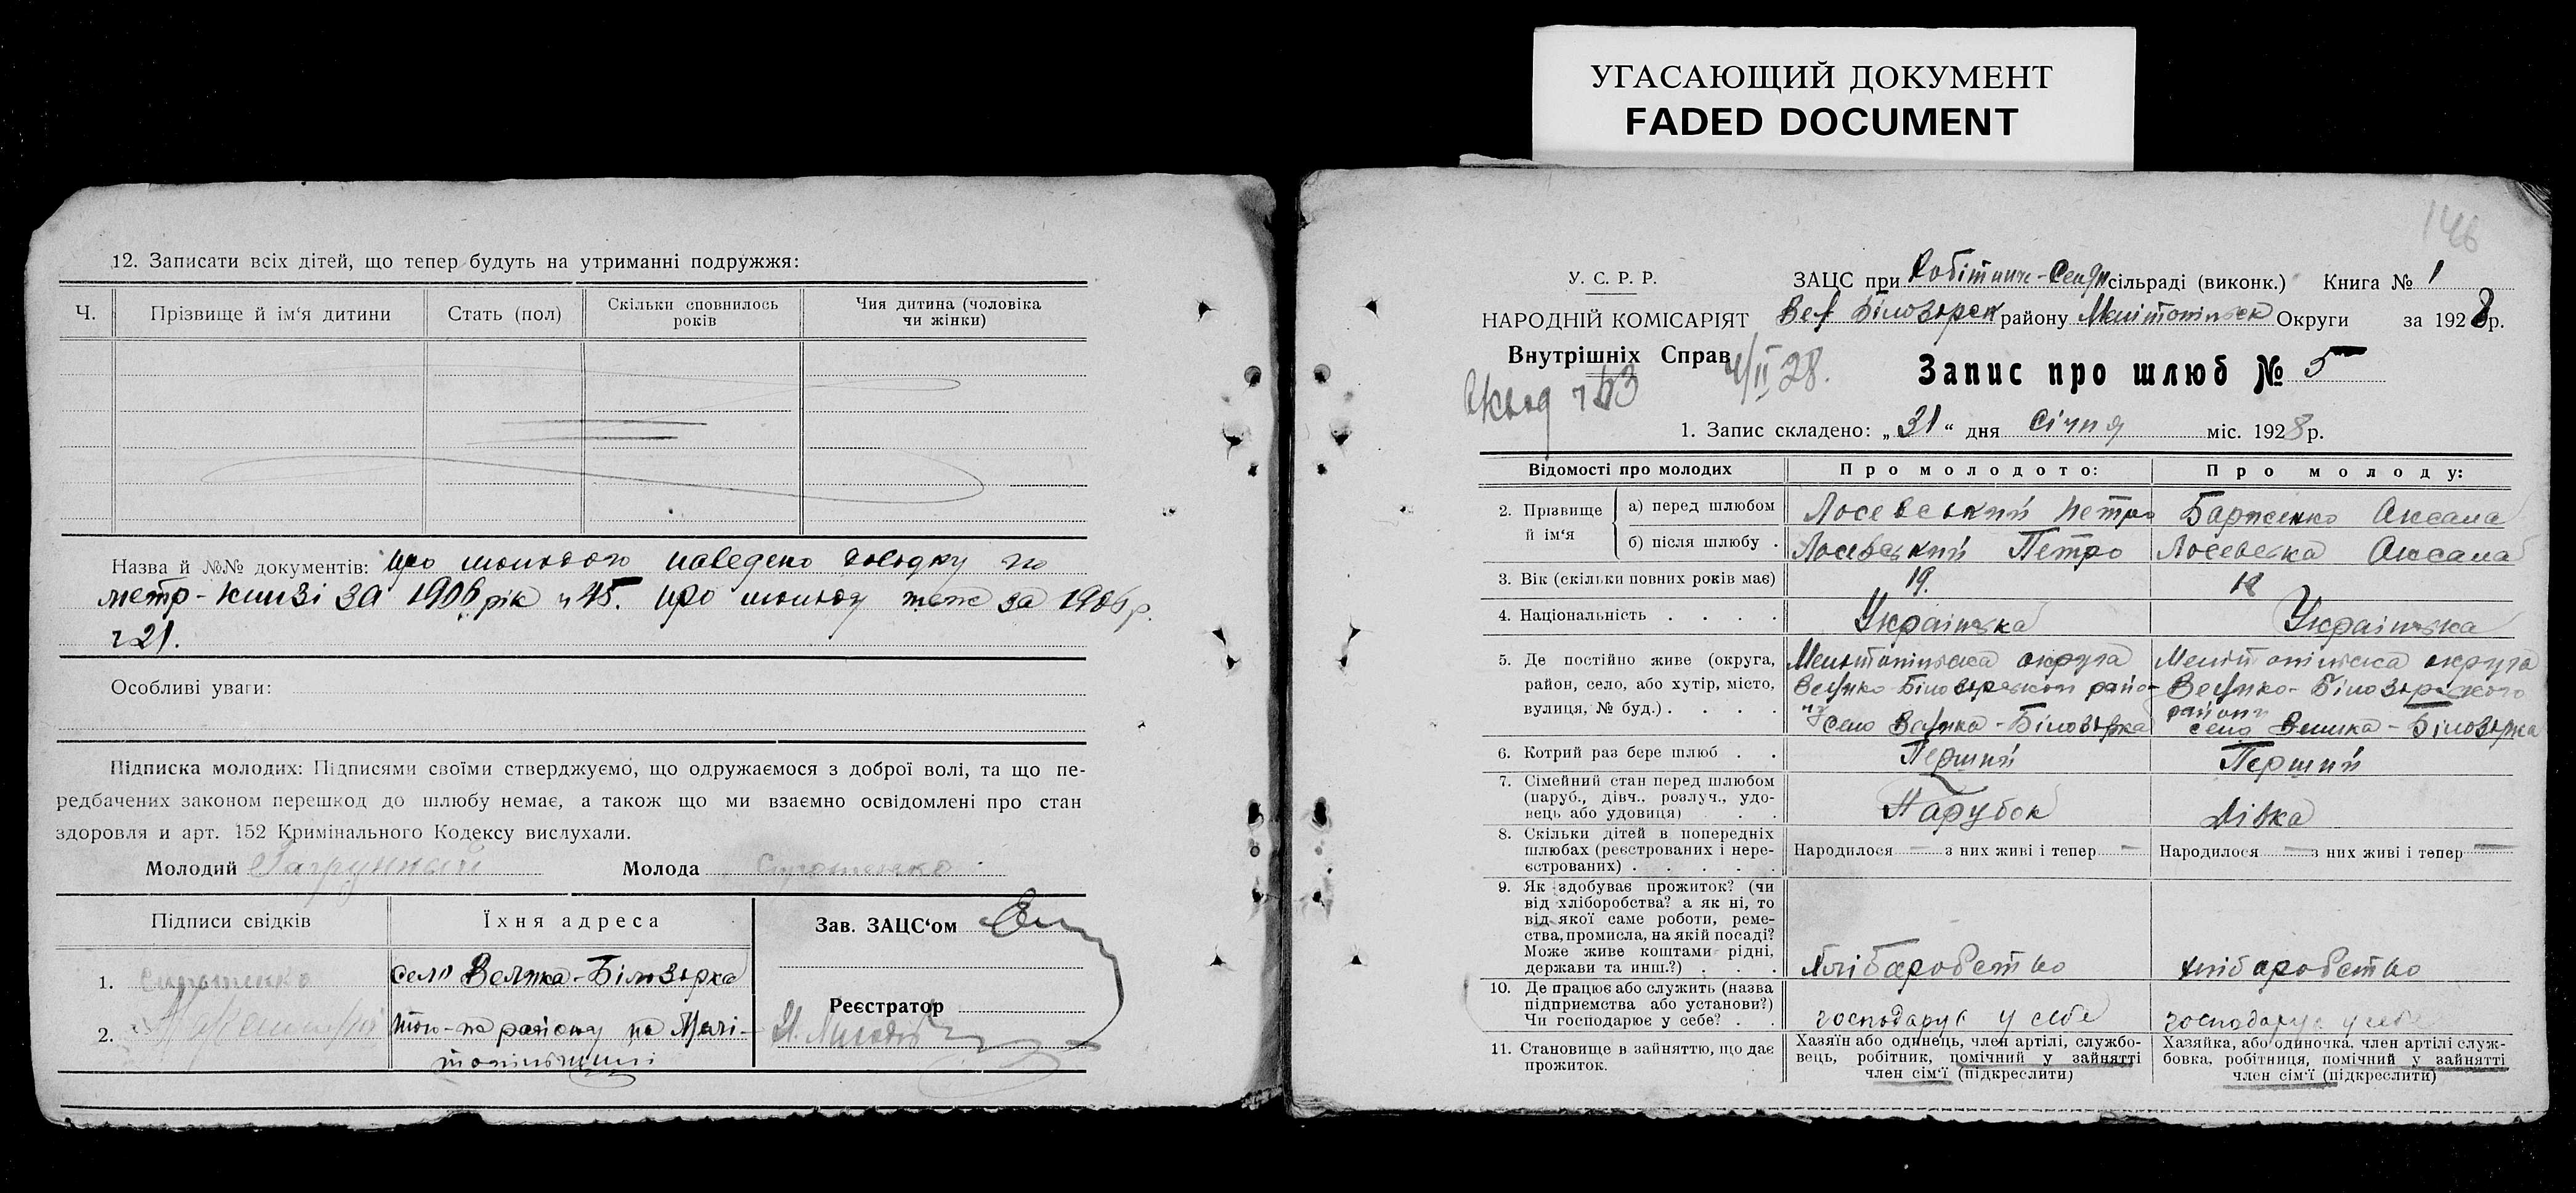 УГАСАЮЩИЙ ДОКУМЕНТ
FADED DOCUMENT
12. Записати всіх дітей, що тепер будуть на утриманні подружжя:
Ч. Прізвище й ім‘я дитини Стать (пол) Скільки сповнилось років Чия дитина (чоловіка чи жінки)
Назва й №№ документів: про молодого наведено довідку по
метр-книзі за 1908 рік ч 45. про молоду теж за 1908 р.
ч 21.
Особливі уваги:
Підписка молодих: Підписями своїми стверджуємо, що одружаємося з доброї волі, та що пе-
редбачених законом перешкод до шлюбу немає, а також що ми взаємно освідомлені про стан
здоровля и арт. 152 Кримінального Кодексу вислухали.
Молодий Молода
Підписи свідків Їхня адреса Зав. ЗАЦС‘ом
1. Сиротенко село Велика-Білозърка
Реєстратор
2. того-ж району на Мелі-
топільщині
146
У. С. Р. Р.
НАРОДНІЙ КОМІСАРІЯТ
Внутрішніх Справ
4/II 28.
ЗАЦС при сільраді (виконк.) Книга № 1
Вел Білозърськ району Мелітопільськ Округи за 1928 р.
Запис про шлюб № 5
1. Запис складено: „31“ дня січня міс. 1928 р.
Відомості про молодих Про молодого: Про молоду:
2. Прізвище й ім‘я
а) перед шлюбом Лосевський Петро Оксана
б) після шлюбу . Лосевський Петро Лосевська Оксана
3. Вік (скільки повних років має) 19.
4. Національність . . . . Українська Українська
5. Де постійно живе (округа, район, село, або хутір, місто, вулиця, № буд.) . . . .
Мелітопільська округа Велико-Білозърського району село Велика-Білозърка
Мелітопільська округа Велико-Білозърського району село Велика-Білозърка
6. Котрий раз бере шлюб . . Перший Перший
7. Сімейний стан перед шлюбом (паруб., дівч., розлуч., удо-
вець або удовиця) . . Парубок Дівка
8. Скільки дітей в попередніх шлюбах (реєстрованих і нере-
єстрованих) . . . . . Народилося — з них живі і тепер — Народилося — з них живі і тепер —
9. Як здобуває прожиток? (чи
від хліборобства? а як ні, то
від якої саме роботи, реме-
ства, промисла, на якій посаді?
Може живе коштами рідні,
держави та инш.?) . . . хліборобство хліборобство
10. Де працює або служить (назва
підприємства або установи?)
Чи господарює у себе? . . господарує у себе господарує у себе
11. Становище в зайняттю, що дає
прожиток.
Хазяїн або одинець, член артілі, службо-
вець, робітник, помічний у зайнятті
член сім‘ї (підкреслити)
Хазяйка, або одиночка, член артілі служ-
бовка, робітниця, помічний у зайнятті
член сім‘ї (підкреслити)